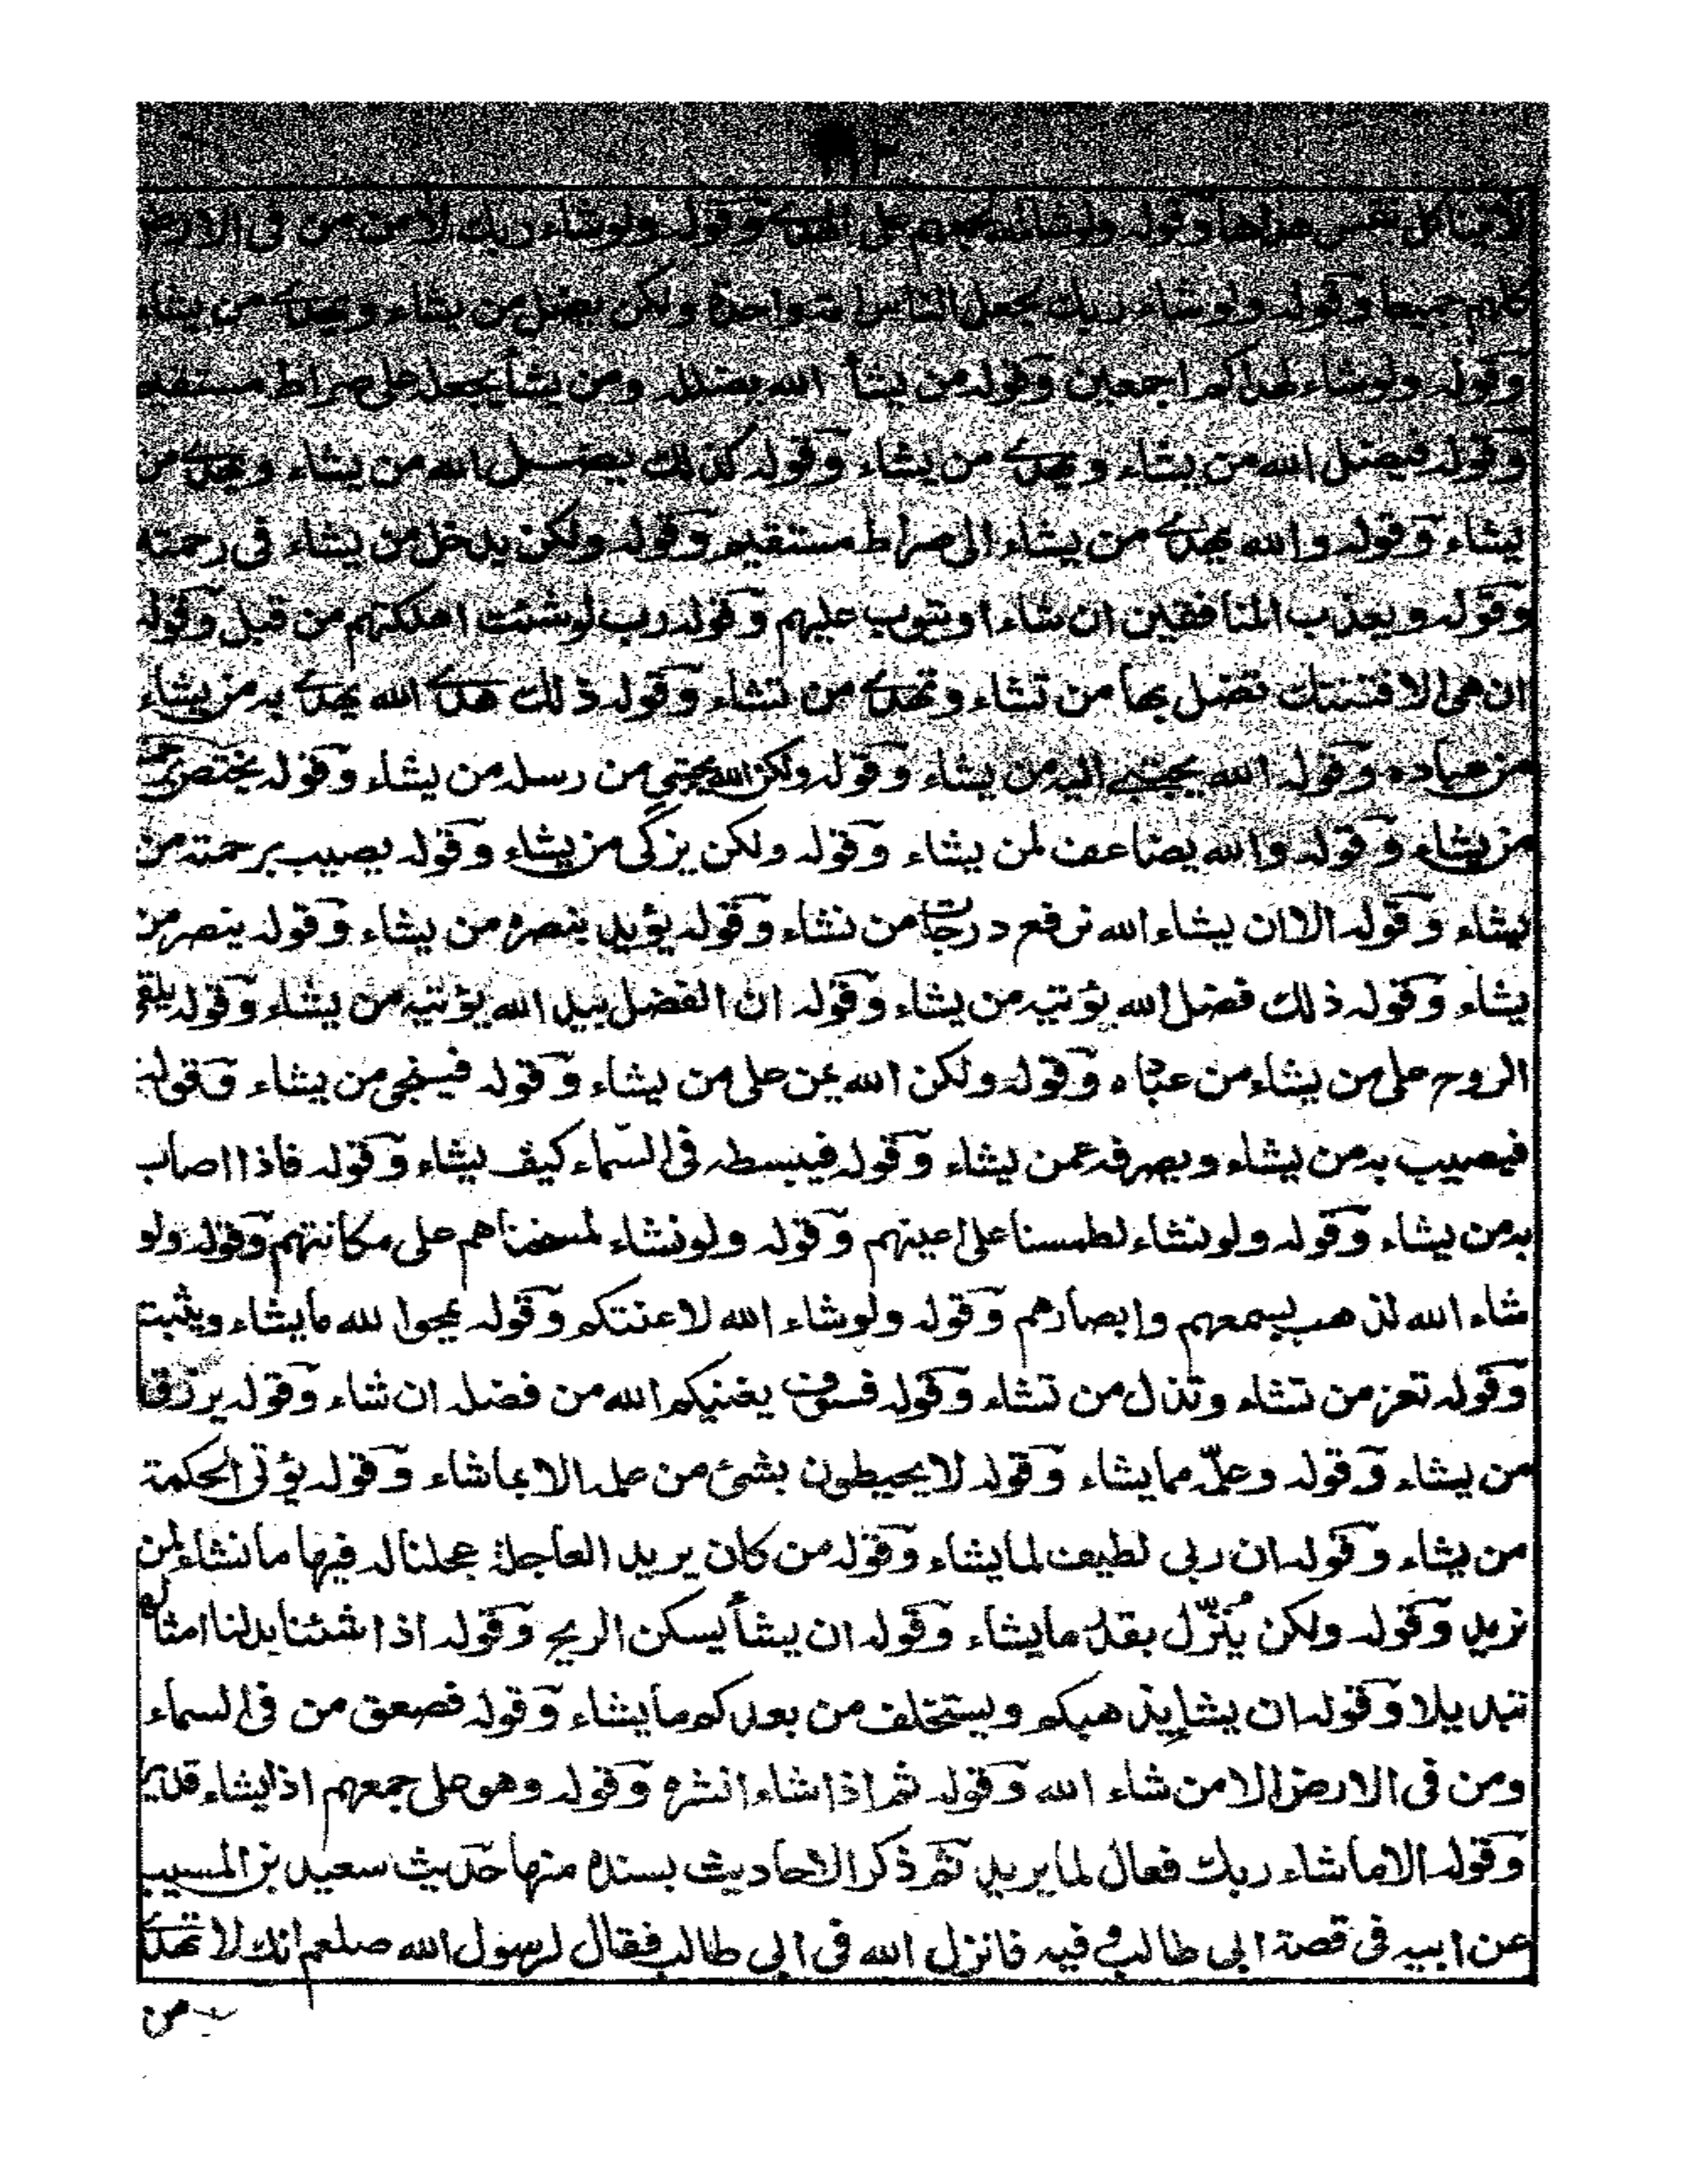 لاتينا كل نفس هداها وقوله ولو شاء الله لجمعهم على الهدى وقوله ولو شاء ربك لامن من فى الارض
كلهم جميعا وقوله ولو شاء ربك لجعل الناس امة واحدة ولكن يضل من يشاء ويهدى من يشاء
وقوله ولو شاء لهداكم اجمعين وقوله من يشأ الله يضلله ومن يشأ يجعله على صراط مستقيم
وقوله فيضل الله من يشاء ويهدى من يشاء وقوله كذلك يضل الله من يشاء ويهدى من
يشاء وقوله والله يهدى من يشاء الى صراط مستقيم وقوله ولكن يدخل من يشاء فى رحمته
وقوله ويعذب المنافقين ان شاء او يتوب عليهم وقوله رب لو شئت اهلكتهم من قبل وقوله
ان هى الا فتنتك تضل بها من تشاء وتهدى من تشاء وقوله ذلك هدى الله يهدى به من يشاء
من عباده وقوله الله يجتبى اليه من يشاء وقوله ولكن الله يجتبى من رسله من يشاء وقوله يختص برحمته
من يشاء وقوله والله يضاعف لمن يشاء وقوله ولكن يزكى من يشاء وقوله يصيب برحمته من
يشاء وقوله الا ان يشاء الله نرفع درجات من نشاء وقوله يؤيد بنصره من يشاء وقوله ينصر من
يشاء وقوله ذلك فضل الله يؤتيه من يشاء وقوله ان الفضل بيد الله يؤتيه من يشاء وقوله يلقى
الروح على من يشاء من عباده وقوله ولكن الله يمن على من يشاء وقوله فينجى من يشاء وقوله
فيصيب به من يشاء ويصرفه عمن يشاء وقوله فيبسطه فى السماء كيف يشاء وقوله فاذا اصاب
به من يشاء وقوله ولو نشاء لطمسنا على اعينهم وقوله ولو نشاء لمسخناهم على مكانتهم وقوله ولو
شاء الله لذهب بسمعهم وابصارهم وقوله ولو شاء الله لاعنتكم وقوله يمحوا لله ما يشاء ويثبت
وقوله تعز من تشاء وتذل من تشاء وقوله فسوف يغنيكم الله من فضله ان شاء وقوله يرزق
من يشاء وقوله وعلّمه مما يشاء وقوله لا يحيطون بشئ من علمه الا بما شاء وقوله يؤتى الحكمة
من يشاء وقوله ان ربى لطيف لما يشاء وقوله من كان يريد العاجلة عجلنا له فيها ما نشاء لمن
نريد وقوله ولكن يُنَزّل بقدر ما يشاء وقوله ان يشأ يسكن الريح وقوله اذا شئنا بدلنا امثالهم
تبديلا وقوله ان يشأ يذهبكم ويستخلف من بعدكم ما يشاء وقوله فصعق من فى السماء
ومن فى الارض الا من شاء الله وقوله ثم اذا شاء انشره وقوله وهو على جمعهم اذا يشاء قدير
وقوله الا ما شاء ربك فعال لما يريد ثم ذكر الاحاديث بسنده منها حديث سعيد بن المسيب
عن ابيه فى قصة ابى طالب وفيه فانزل الله فى ابى طالب فقال لرسول الله صلعم انك لا تهدى
من